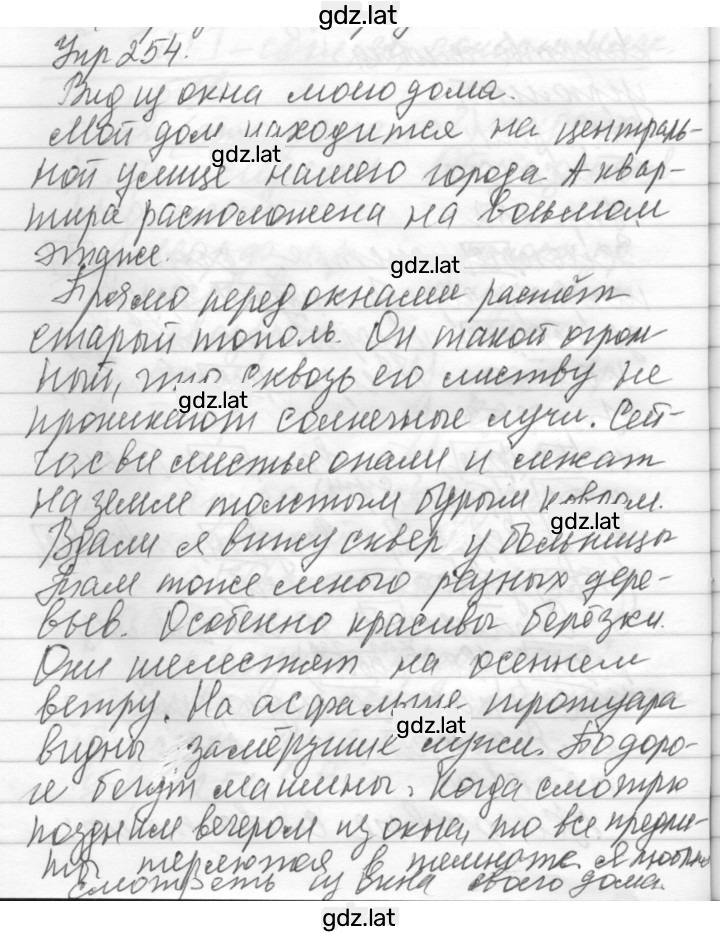 gdz.lat
Упр 254.
Вид из окна моего дома.
Мой дом находится на централь-
gdz.lat
ной улице нашего города. А квар-
тира расположена на восьмом
этаже.
gdz.lat
Прямо перед окнами растёт
старый тополь. Он такой огром-
ный, что сквозь его листву не
gdz.lat
проникают солнечные лучи. Сей-
час все листья опали и лежат
на земле толстым бурым ковром.
gdz.lat
Вдали я вижу сквер у больницы
Там тоже много разных дере-
вьев. Особенно красивы берёзки.
Они шелестят на осеннем
ветру. На асфальте тротуара
gdz.lat
видны замёрзшие лужи. По доро-
ге бегут машины. Когда смотрю
поздним вечером из окна, то все предме-
ты теряются в темноте. Я люблю
смотреть из окна своего дома.
gdz.lat